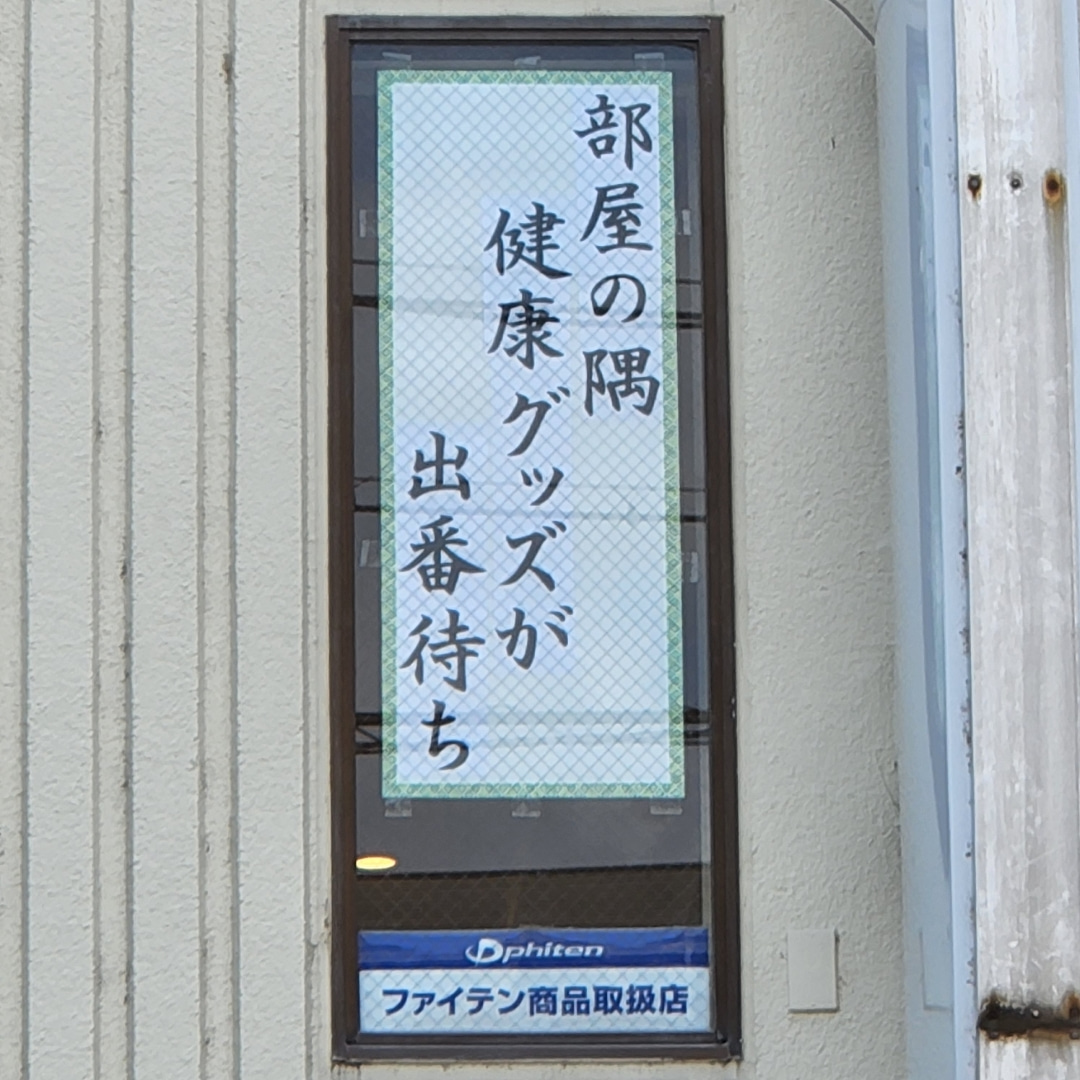 部屋の隅
健康グッズが
出番待ち
phiten
ファイテン商品取扱店